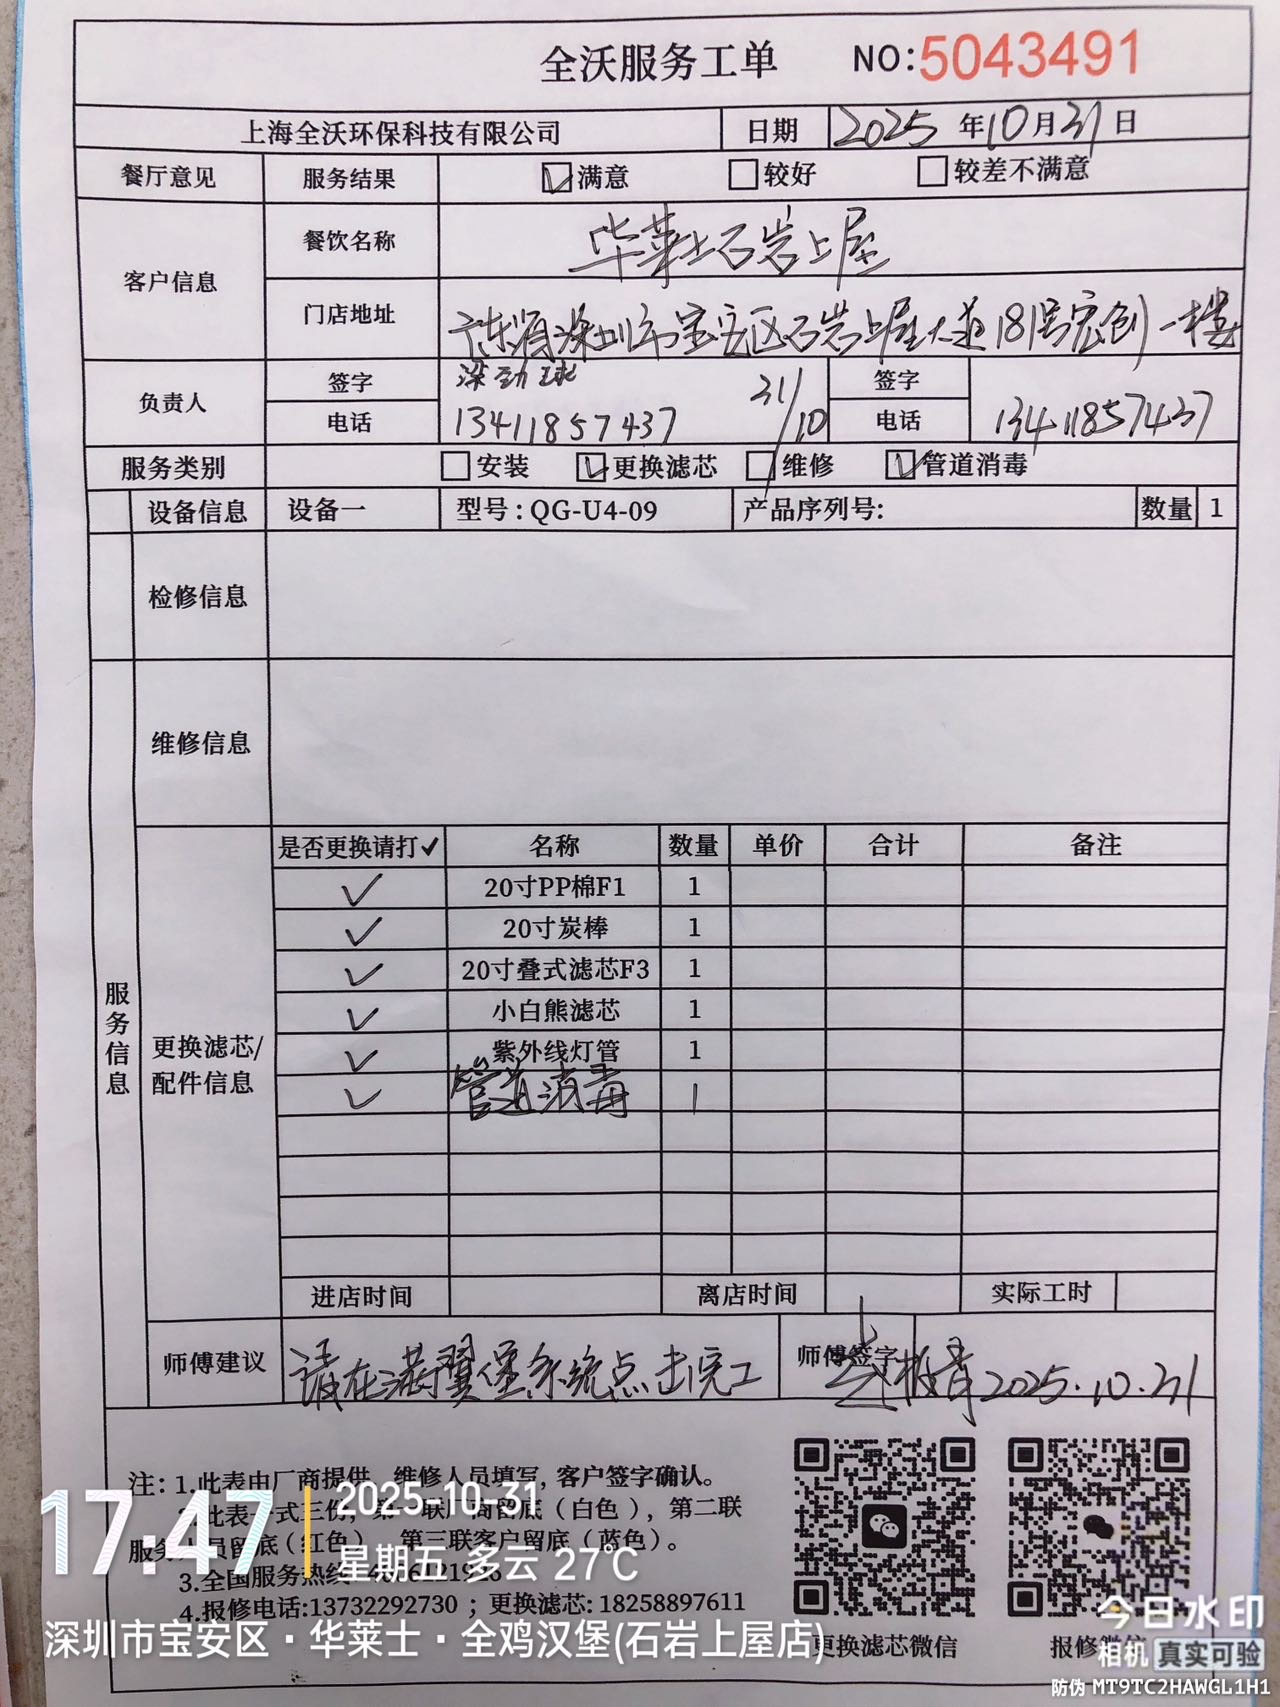 全沃服务工单 NO:5043491
上海全沃环保科技有限公司 日期 2025年10月31日
餐厅意见 服务结果 ☑满意 □较好 □较差不满意
客户信息 餐饮名称 华莱士石岩上屋
门店地址 广东省深圳市宝安区石岩上屋大道181号宏创一楼
负责人 签字 31/10 签字
电话 13411857437 电话 13411857437
服务类别 □安装 ☑更换滤芯 □维修 ☑管道消毒
设备信息 设备一 型号:QG-U4-09 产品序列号: 数量 1
检修信息
维修信息
服务信息
更换滤芯/
配件信息
是否更换请打✓ 名称 数量 单价 合计 备注
✓ 20寸PP棉F1 1
✓ 20寸炭棒 1
✓ 20寸叠式滤芯F3 1
✓ 小白熊滤芯 1
✓ 紫外线灯管 1
✓ 管道消毒 1
进店时间 离店时间 实际工时
师傅建议 请在满翼堡系统点击完工 师傅签字 2025.10.31
注:1.此表由厂商提供,维修人员填写,客户签字确认。
2.此表一式三份,第一联厂商留底(白色),第二联
服务人员留底(红色),第三联客户留底(蓝色)。
3.全国服务热线
4.报修电话:13732292730;更换滤芯:18258897611
更换滤芯微信 报修微信
17:47 2025.10.31
星期五 多云 27℃
深圳市宝安区·华莱士·全鸡汉堡(石岩上屋店)
今日水印
相机 真实可验
防伪 MT9TC2HAWGL1H1